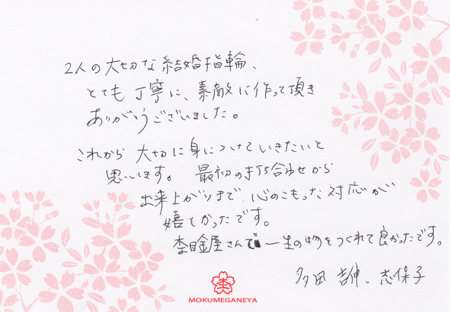 2人の大切な結婚指輪、
とても丁寧に、素敵に作って頂き
ありがとうございました。
これから 大切に身につけていきたいと
思います。 最初の打ち合わせから
出来上がりまで 心のこもった対応が
嬉しかったです。
杢目金屋さんで 一生の物をつくれて良かったです。
多田 吉伸、志保子
MOKUMEGANEYA